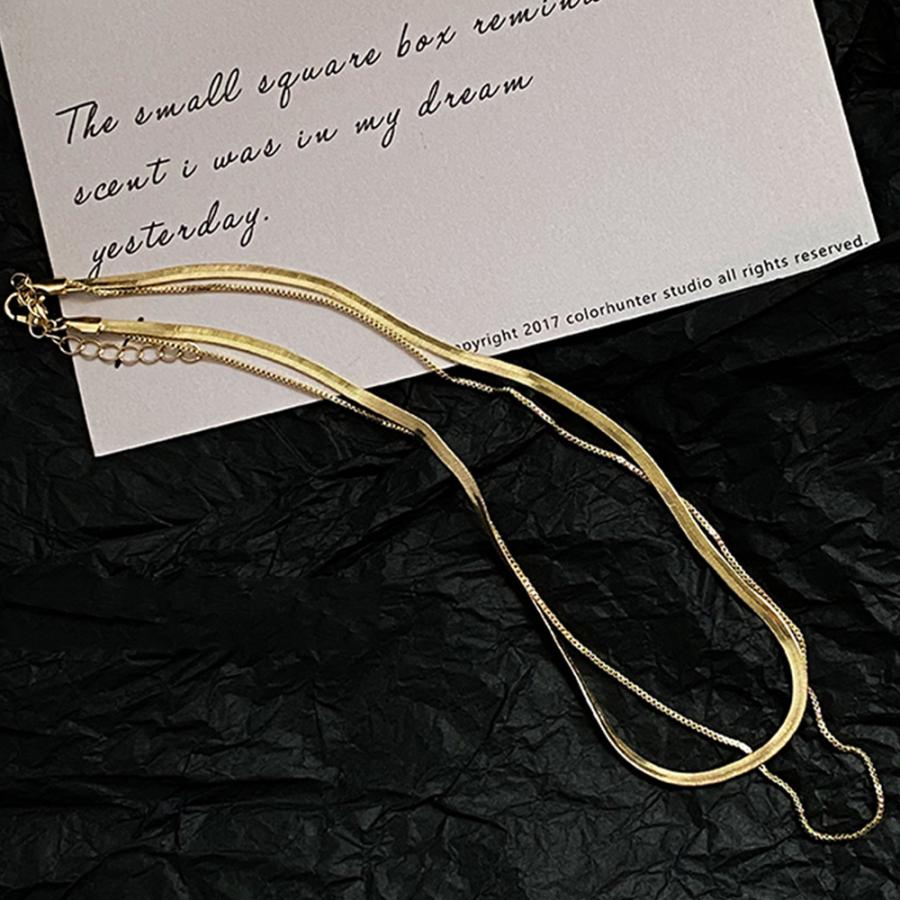 The small square box
scent i was in my dream
yesterday.
2017 colorhunter studio all rights reserved.